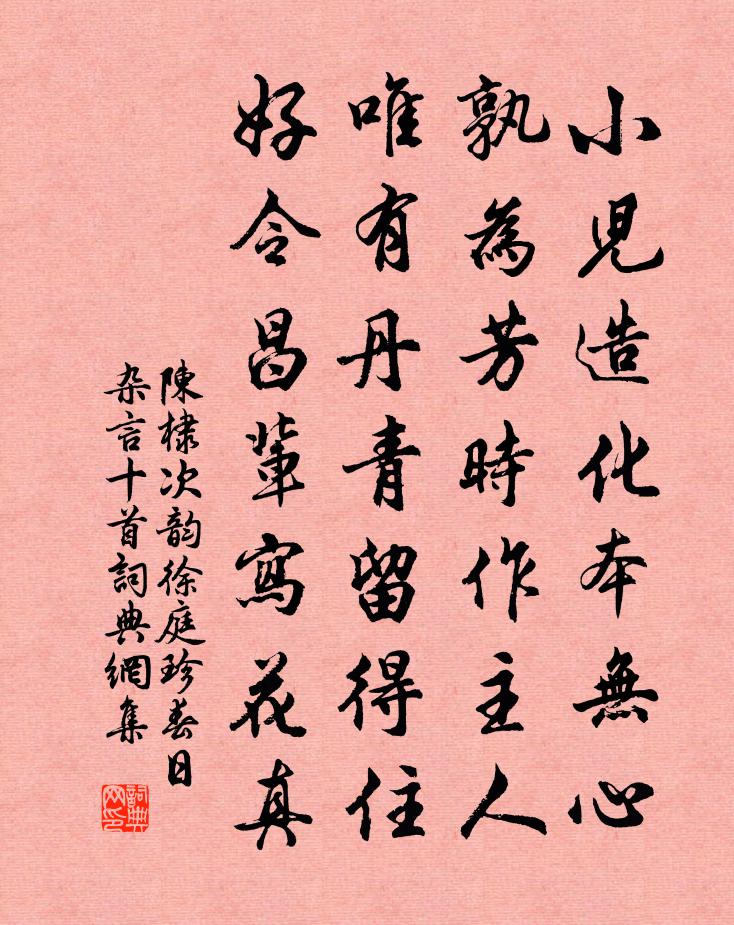 小兒造化本無心
孰為芳時作主人
唯有丹青留得住
好令昌輩寫花真
陳棣次韵徐庭珍春日
杂言十首詞典網集
詞典网印